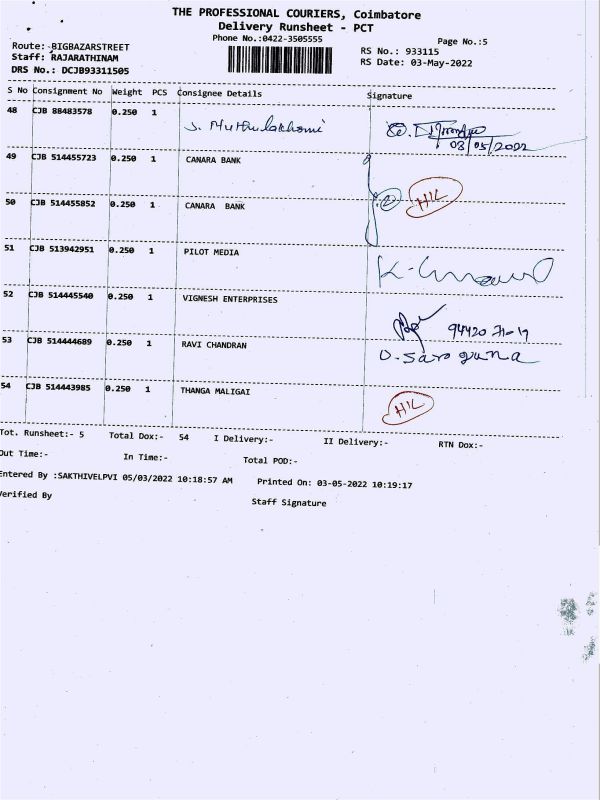 THE PROFESSIONAL COURIERS, Coimbatore
Delivery Runsheet - PCT
Phone No.:0422-3505555
Page No.:5
Route: BIGBAZARSTREET
RS No.: 933115
Staff: RAJARATHINAM
RS Date: 03-May-2022
DRS No.: DCJB93311505
S No Consignment No Weight PCS Consignee Details Signature
48 CJB 88483578 0.250 1 J. Muthulakhomi
03/05/2022
49 CJB 514455723 0.250 1 CANARA BANK
HK
50 CJB 514455852 0.250 1 CANARA BANK
51 CJB 513942951 0.250 1 PILOT MEDIA
52 CJB 514445540 0.250 1 VIGNESH ENTERPRISES
53 CJB 514444689 0.250 1 RAVI CHANDRAN
54 CJB 514443985 0.250 1 THANGA MALIGAI HK
Tot. Runsheet:- 5 Total Dox:- 54 I Delivery:- II Delivery:- RTN Dox:-
Out Time:- In Time:- Total POD:-
Entered By :SAKTHIVELPVI 05/03/2022 10:18:57 AM Printed On: 03-05-2022 10:19:17
Verified By Staff Signature